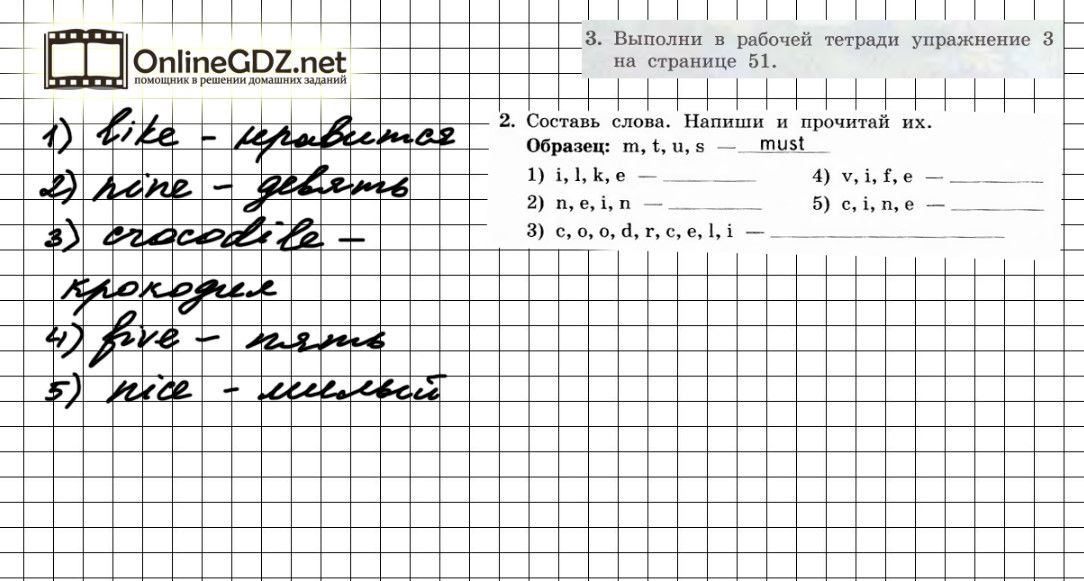 OnlineGDZ.net
помощник в решении домашних заданий
3. Выполни в рабочей тетради упражнение 3
на странице 51.
1) like - нравится
2) nine - девять
3) crocodile -
крокодил
4) five - пять
5) nice - милый
2. Составь слова. Напиши и прочитай их.
Образец: m, t, u, s — must
1) i, l, k, e — 
4) v, i, f, e — 
2) n, e, i, n — 
5) c, i, n, e — 
3) c, o, o, d, r, c, e, l, i —